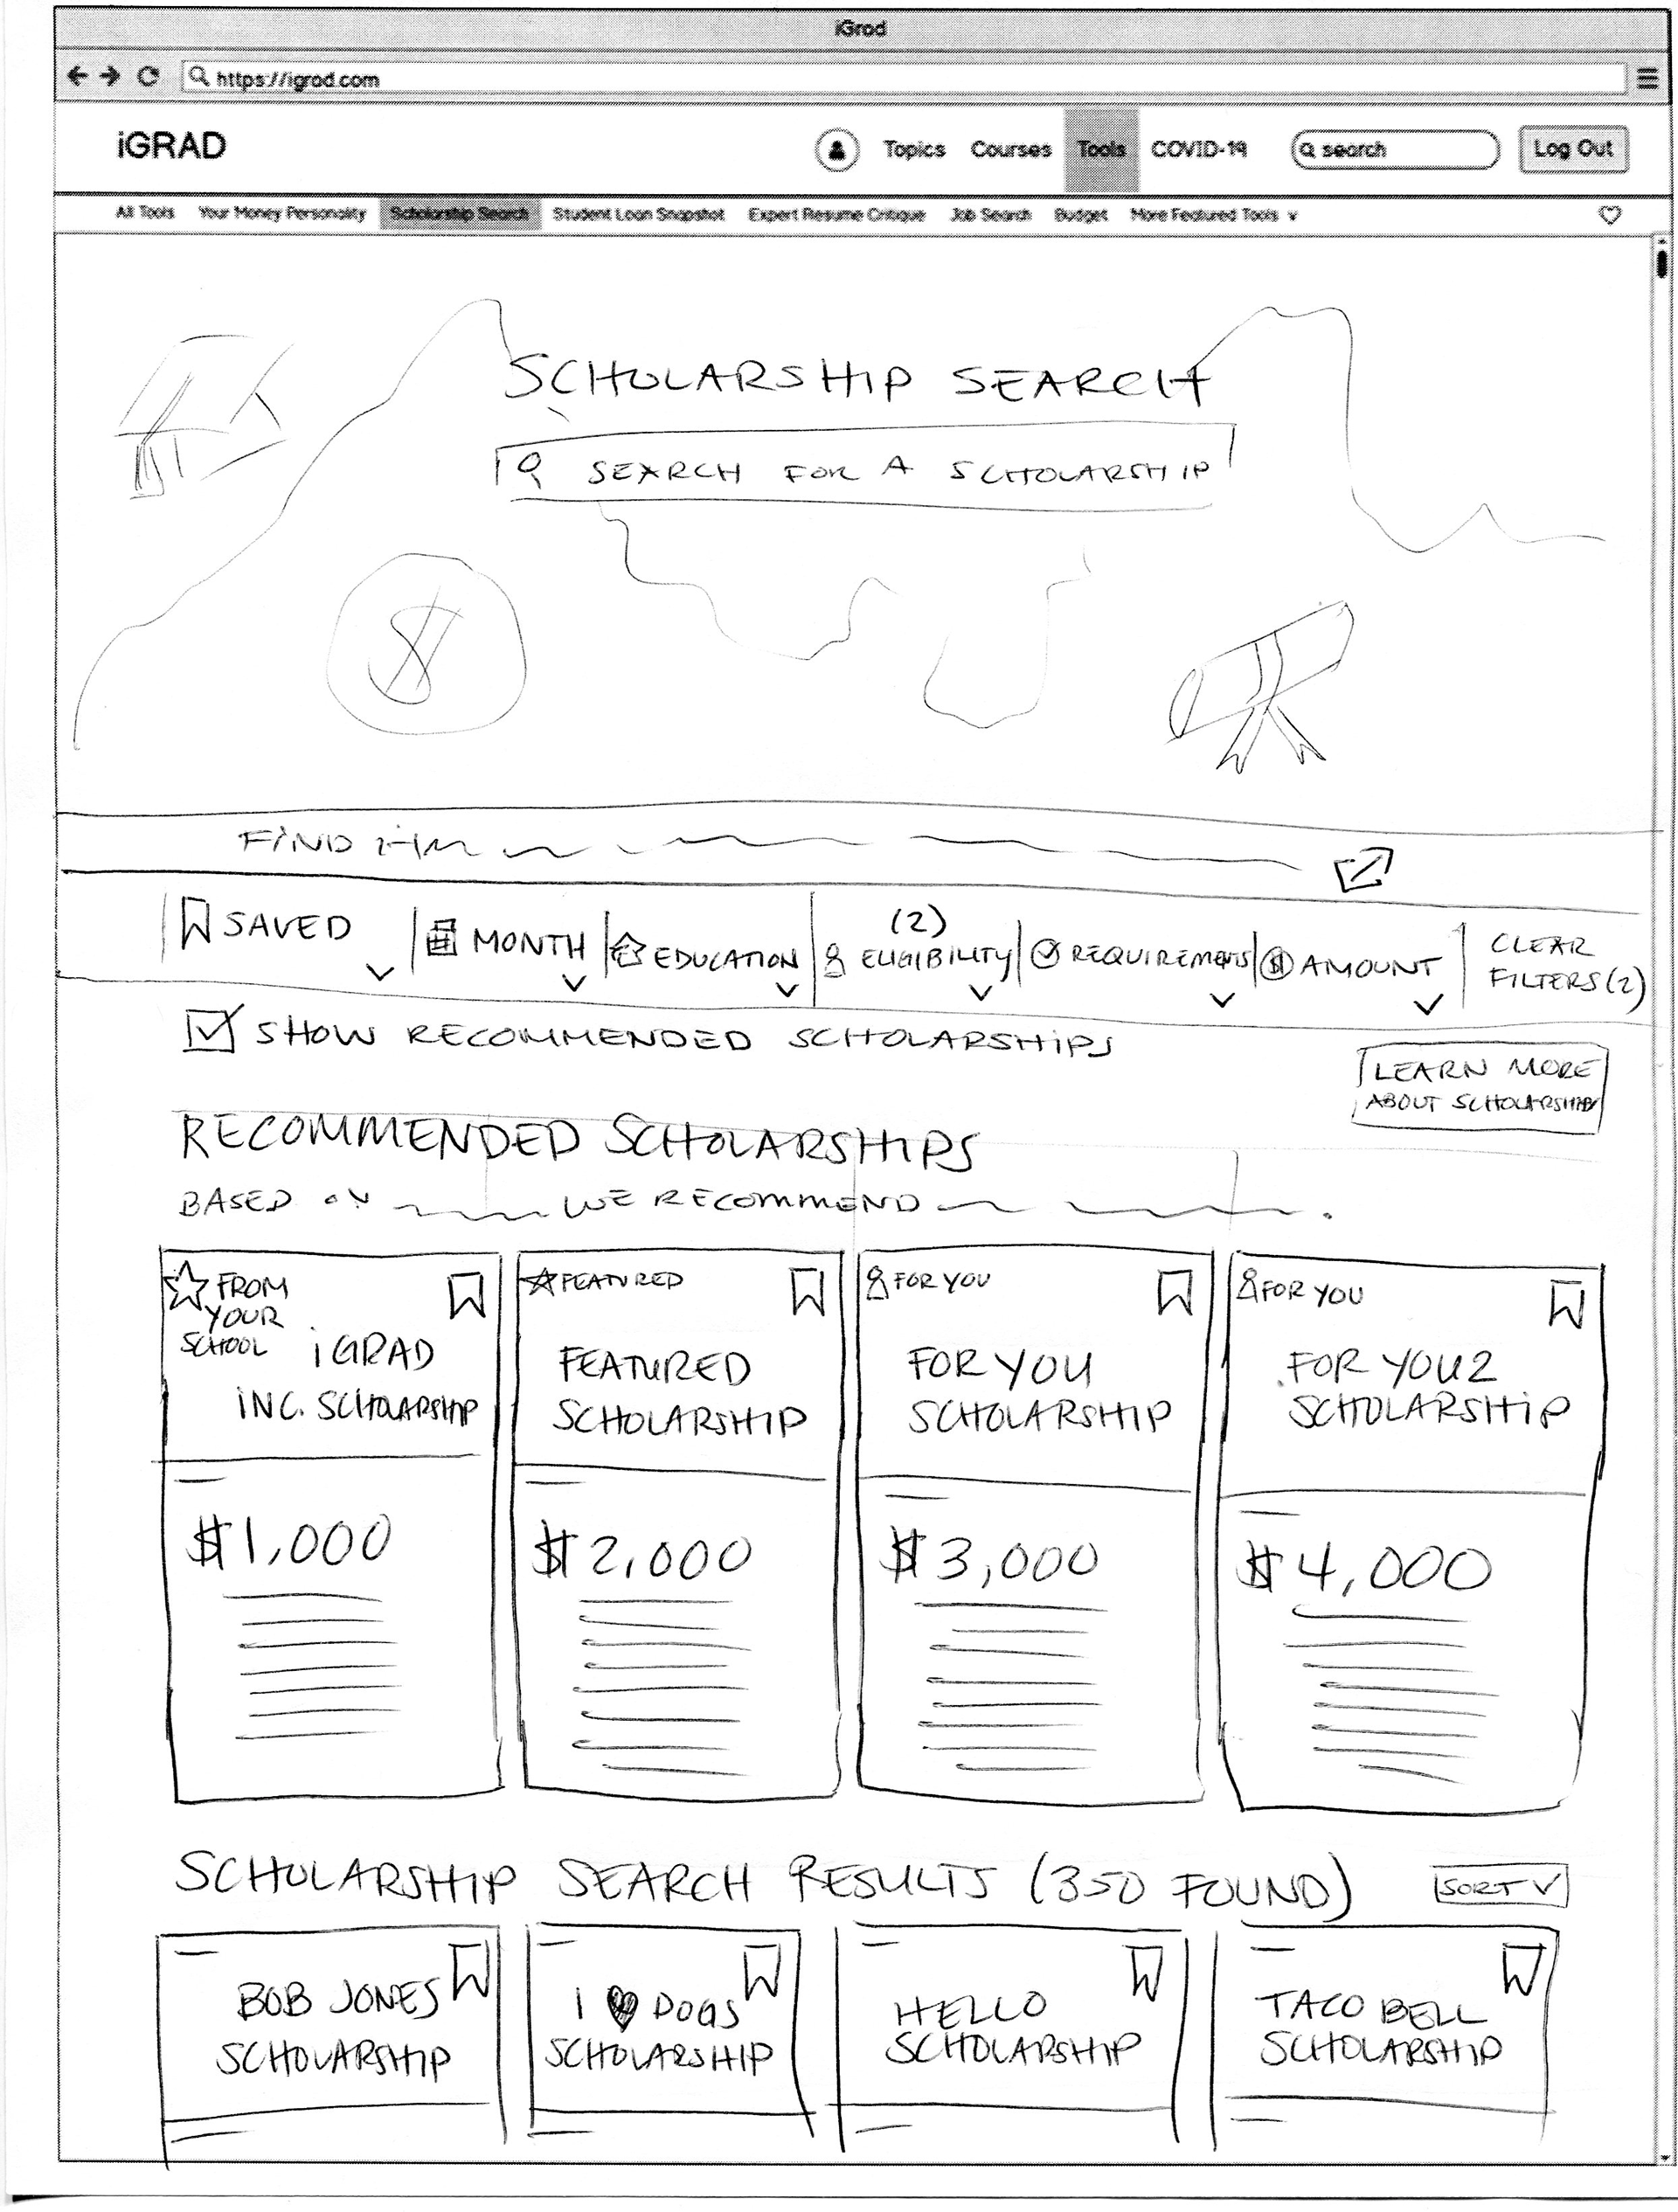 iGrad
https://igrad.com
iGRAD Topics Courses Tools COVID-19 search Log Out
All Tools Your Money Personality Scholarship Search Student Loan Snapshot Expert Resume Critique Job Search Budget More Featured Tools v
SCHOLARSHIP SEARCH
SEARCH FOR A SCHOLARSHIP
FIND
SAVED MONTH EDUCATION (2) ELIGIBILITY REQUIREMENTS $ AMOUNT CLEAR FILTERS (2)
SHOW RECOMMENDED SCHOLARSHIPS
LEARN MORE
ABOUT SCHOLARSHIPS
RECOMMENDED SCHOLARSHIPS
BASED ON WE RECOMMEND
FROM
YOUR
SCHOOL
iGRAD
INC. SCHOLARSHIP
$1,000
FEATURED
FEATURED
SCHOLARSHIP
$2,000
FOR YOU
FOR YOU
SCHOLARSHIP
$3,000
FOR YOU
FOR YOU 2
SCHOLARSHIP
$4,000
SCHOLARSHIP SEARCH RESULTS (350 FOUND) SORT V
BOB JONES
SCHOLARSHIP
I ♥ DOGS
SCHOLARSHIP
HELLO
SCHOLARSHIP
TACO BELL
SCHOLARSHIP